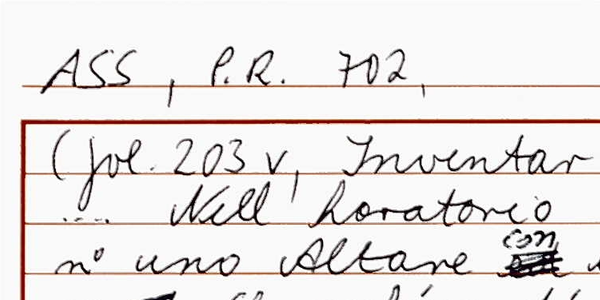 ASS, P.R. 702,
(fol. 203 v, Inventar
.... Nell horatorio
n° uno Altare con